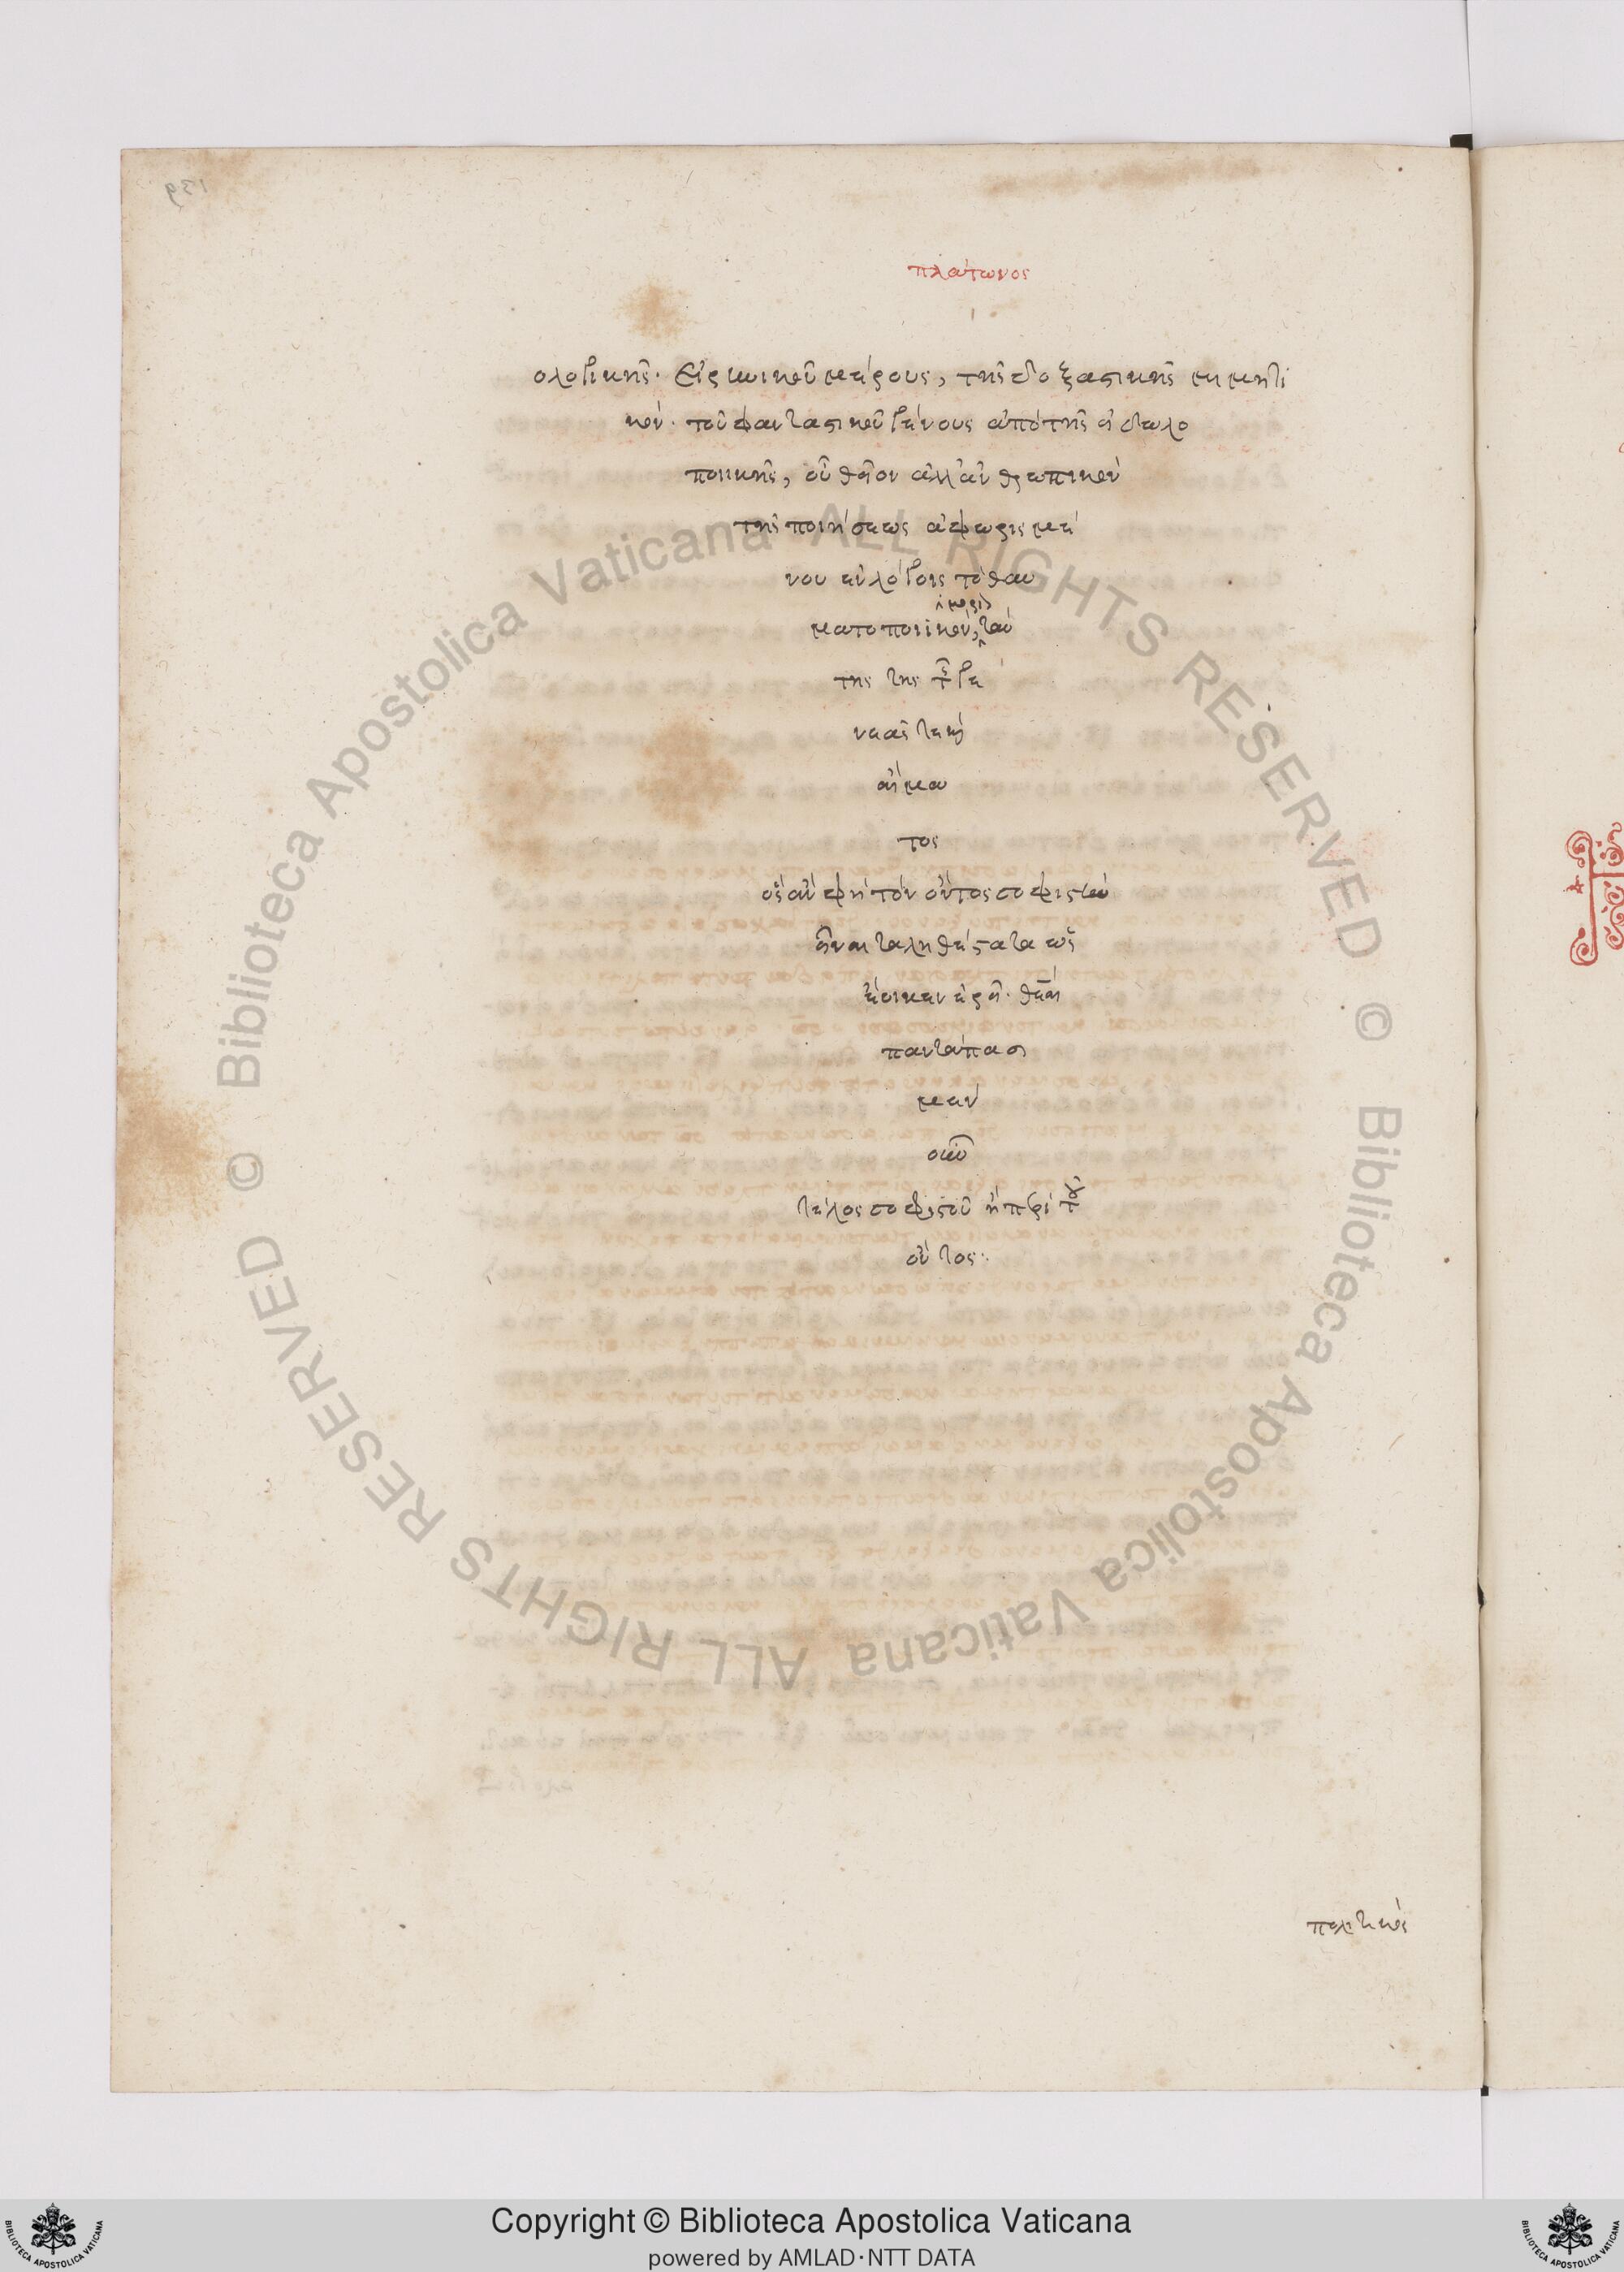 πλάτωνος
ολογικῆς. εἰρωνικοῦ μέρους, τῆς δοξαστικῆς μιμητι
κόν. τοῦ φανταστικοῦ γένους ἀπὸ τῆς εἰδωλο
ποιικῆς, οὐ θεῖον ἀλλ' ἀνθρωπικὸν
τῆς ποιήσεως ἀφωρισμέ
νου ἐν λόγοις τὸ θαυ
μόριον
ματοποιικόν, ταύ
της της τς γε
νεᾶς τε καὶ
αἵμα
τος
ὃς ἂν φῇ τὸν ὄντος σοφιστὴν
εἶναι ταληθέστατα ὡς
ἔοικεν ἐρεῖ. θεαί
παντάπασι
μὲν
οὖν
τέλος σοφιστοῦ ἢ περὶ τοῦ
όντος:
πολιτικός
Biblioteca Apostolica Vaticana ALL RIGHTS RESERVED ©
Biblioteca Apostolica Vaticana ALL RIGHTS RESERVED ©
Copyright © Biblioteca Apostolica Vaticana
powered by AMLAD·NTT DATA
BIBLIOTECA APOSTOLICA VATICANA
BIBLIOTECA APOSTOLICA VATICANA